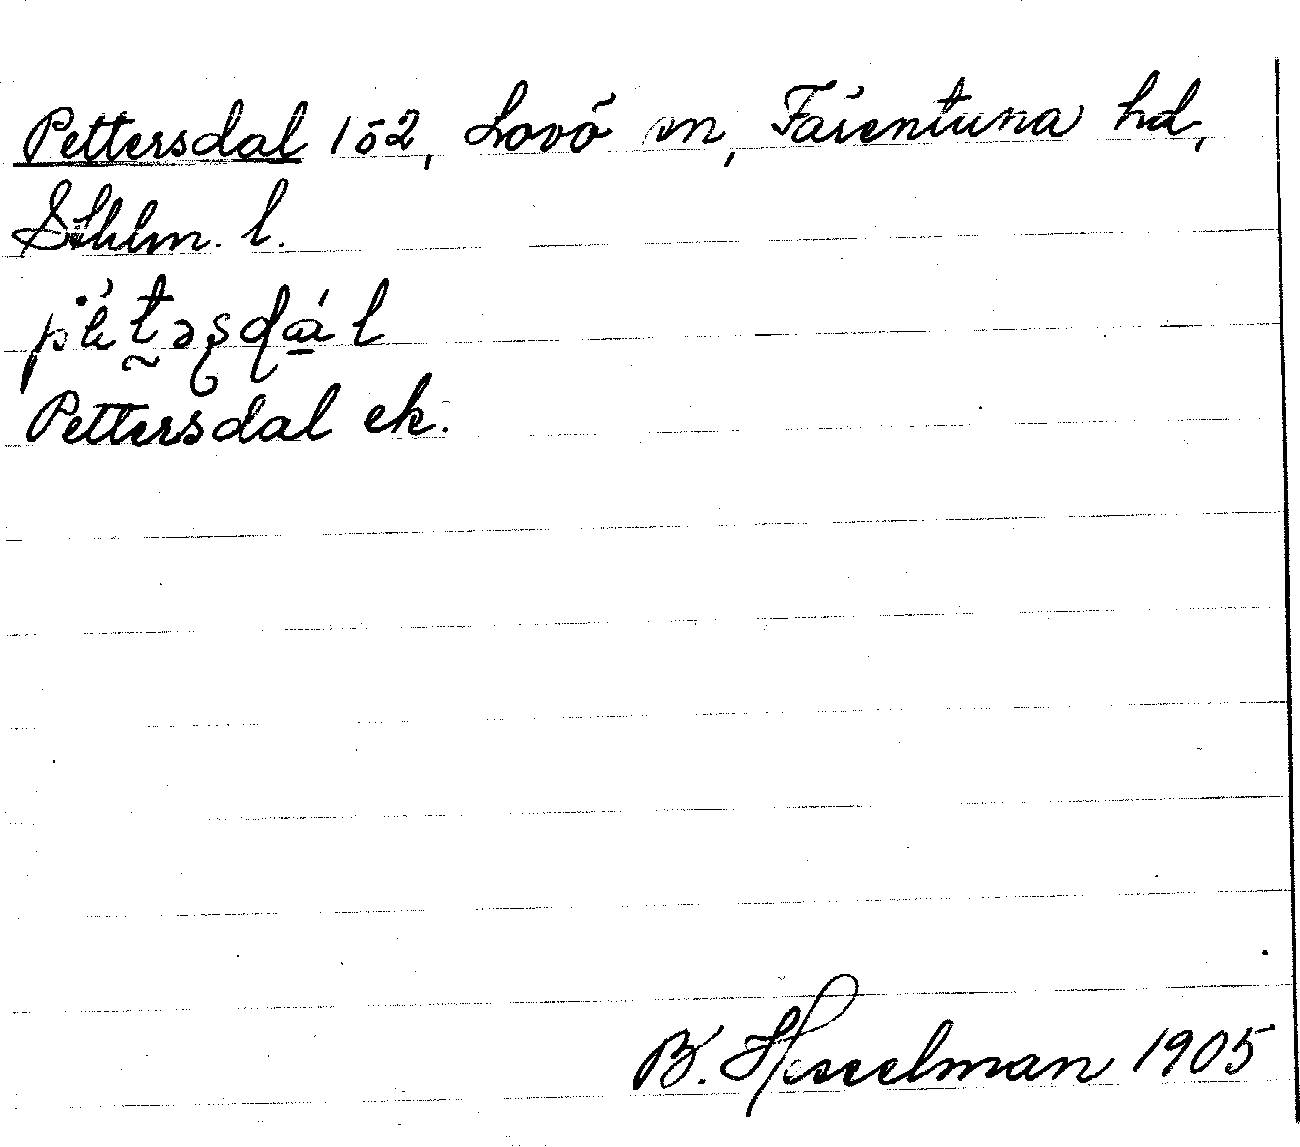 Pettersdal 1 ö 2, Lovö sn, Färentuna hd,
Sthlm. l.
Pettersdal ek.
B. Hesselman 1905